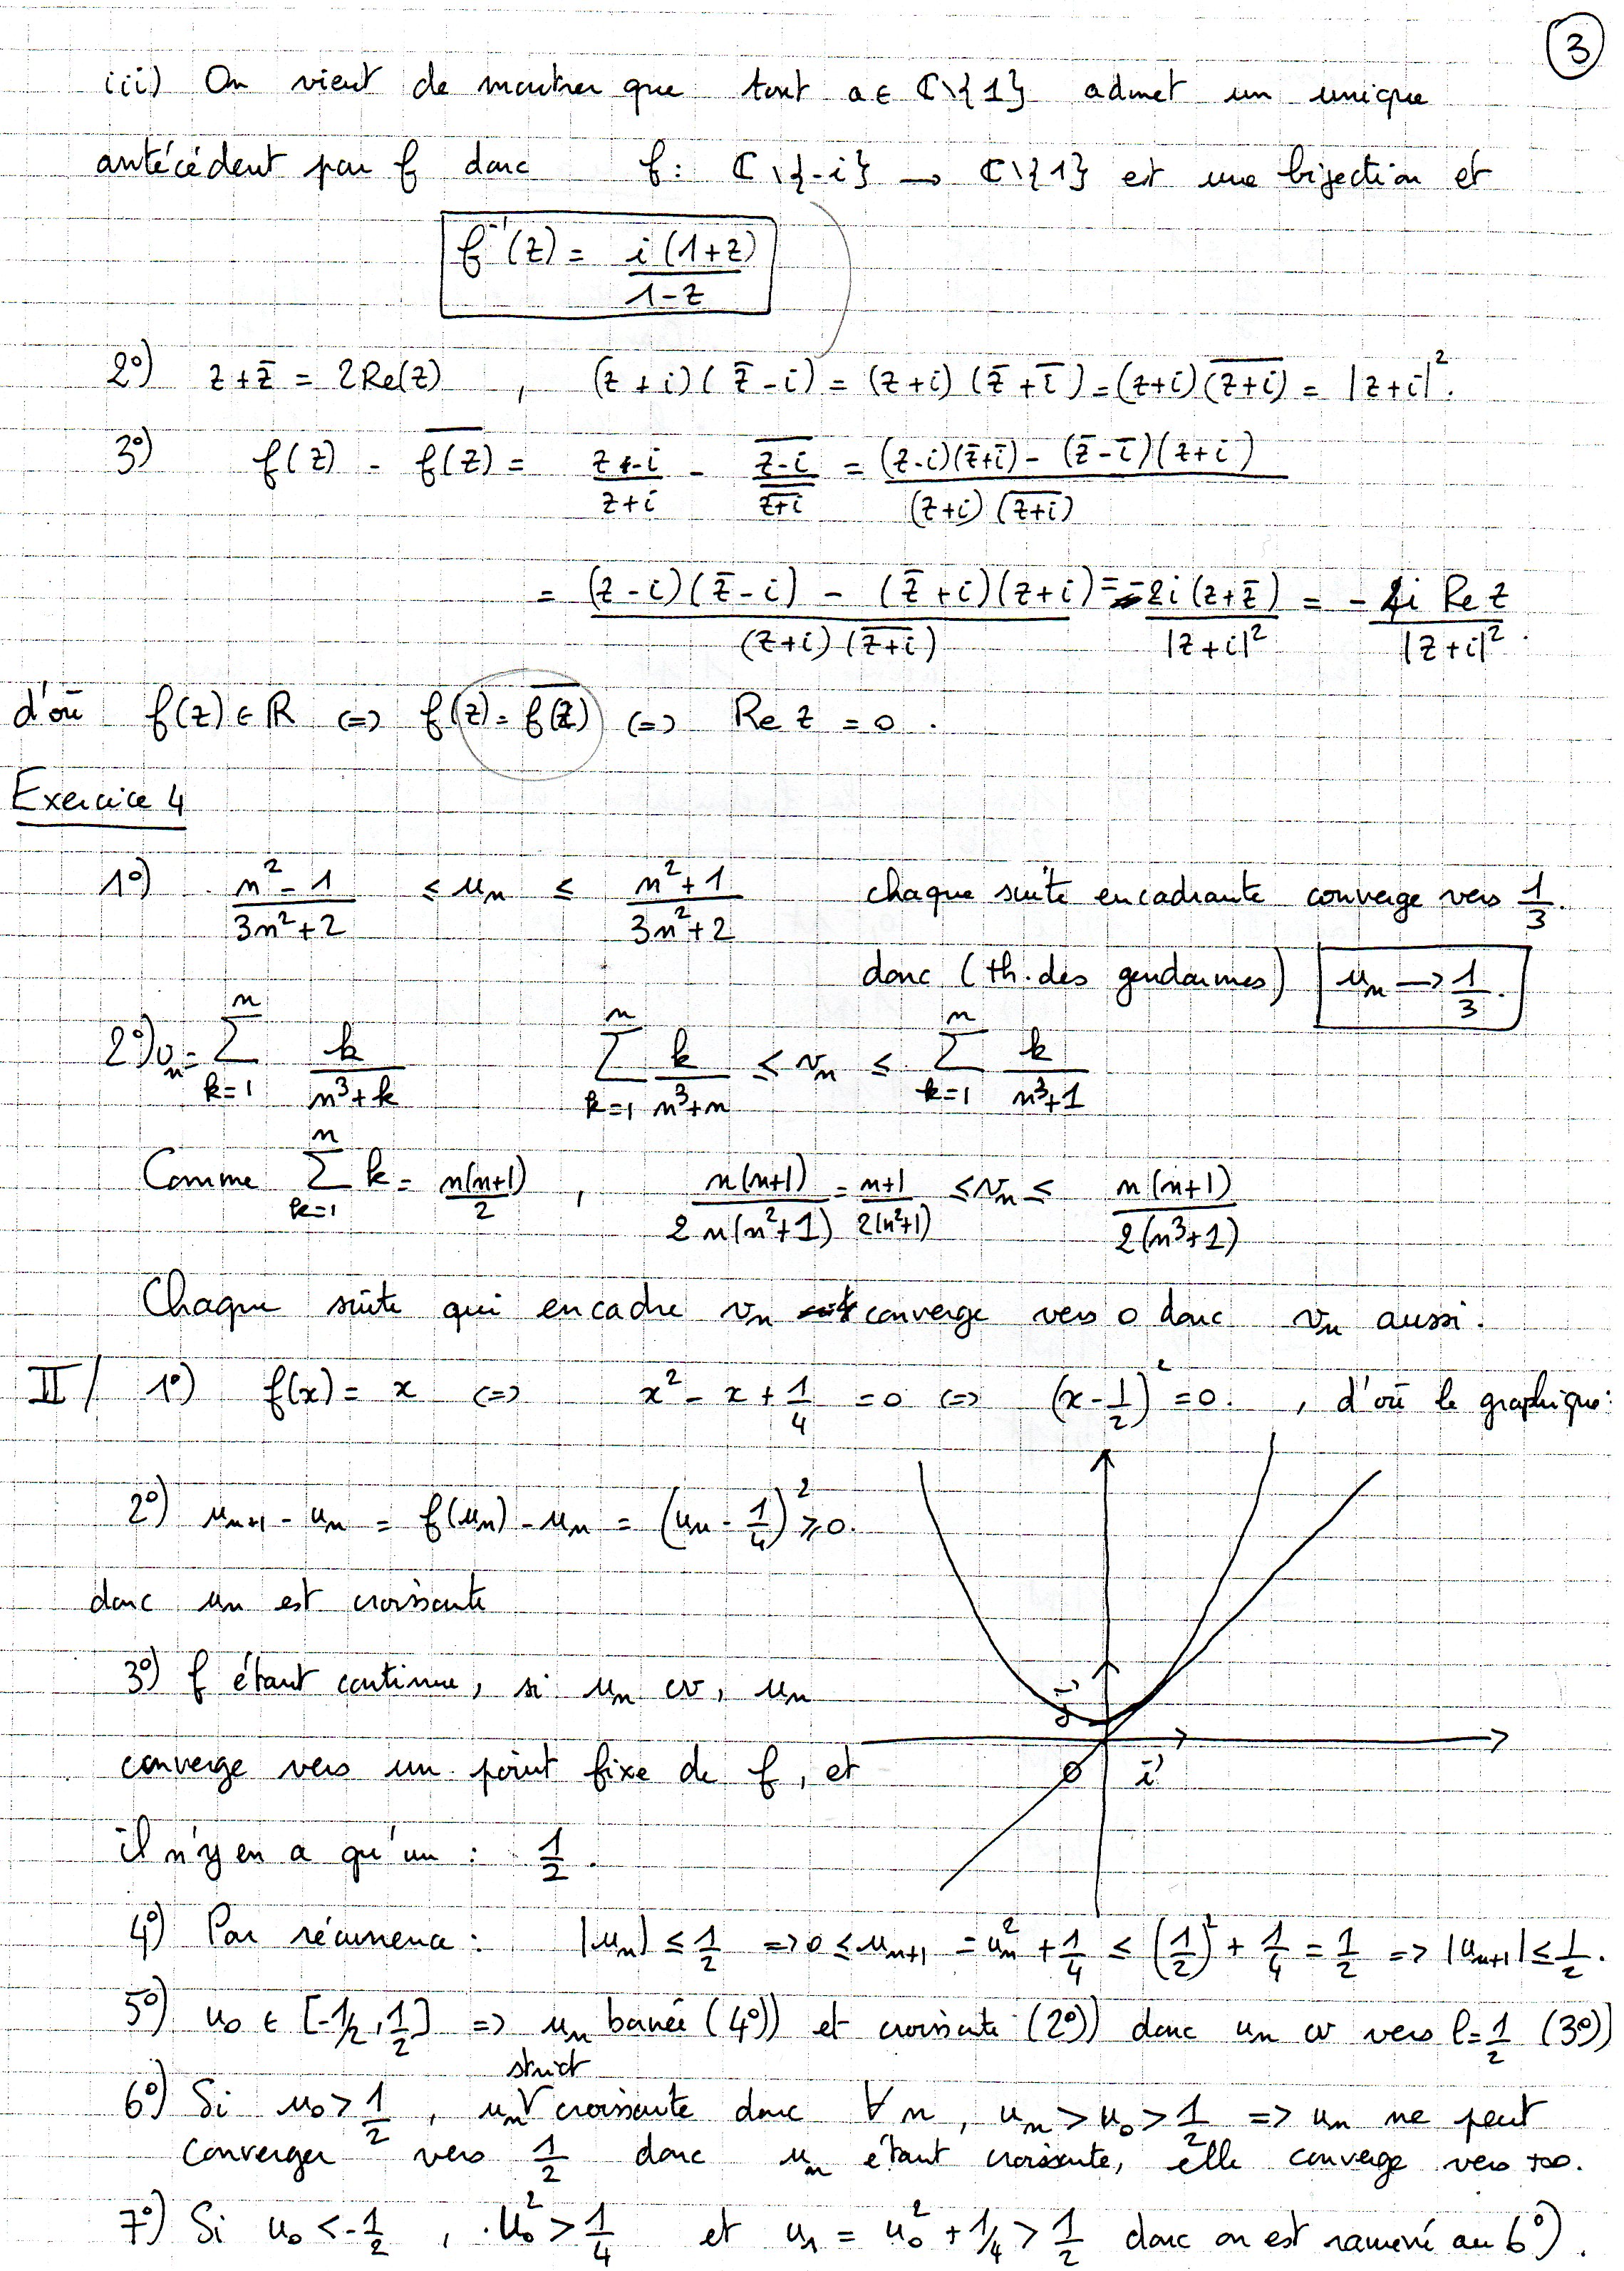 3
iii) On vient de montrer que tout a ∈ ℂ\{1} admet un unique
antécédent par f donc f : ℂ\{-i} → ℂ\{1} est une bijection et
f⁻¹(z) = i(1+z) / 1-z
2°) z + z̅ = 2Re(z) , (z+i)(z̅-i) = (z+i)(z̅+i̅) = (z+i)(\overline{z+i}) = |z+i|².
3°) f(z) - \overline{f(z)} = (z-i)/(z+i) - \overline{z-i}/\overline{z+i} = ((z-i)(z̅+i̅) - (z̅-i̅)(z+i)) / ((z+i)(\overline{z+i}))
= ((z-i)(z̅-i) - (z̅+i)(z+i)) / ((z+i)(\overline{z+i})) = -2i(z+z̅) / |z+i|² = -4i Re z / |z+i|².
d'où f(z) ∈ ℝ <=> f(z) = \overline{f(z)} <=> Re z = 0.
Exercice 4
1°) (n²-1)/(3n²+2) ≤ uₙ ≤ (n²+1)/(3n²+2) chaque suite encadrante converge vers 1/3.
donc (th. des gendarmes) uₙ → 1/3.
2°) vₙ = ∑_{k=1}^{n} k/(n³+k) ∑_{k=1}^{n} k/(n³+n) ≤ vₙ ≤ ∑_{k=1}^{n} k/(n³+1)
Comme ∑_{k=1}^{n} k = n(n+1)/2 , n(n+1)/(2n(n²+1)) = (n+1)/(2(n²+1)) ≤ vₙ ≤ n(n+1)/(2(n³+1))
Chaque suite qui encadre vₙ converge vers 0 donc vₙ aussi.
II/ 1°) f(x) = x <=> x² - x + 1/4 = 0 <=> (x - 1/2)² = 0. , d'où le graphique :
2°) uₙ₊₁ - uₙ = f(uₙ) - uₙ = (uₙ - 1/4)² ≥ 0.
donc uₙ est croissante
3°) f étant continue, si uₙ cv, uₙ
j⃗
converge vers un point fixe de f, et
O i⃗
il n'y en a qu'un : 1/2.
4°) Par récurrence : |uₙ| ≤ 1/2 => 0 ≤ uₙ₊₁ = uₙ² + 1/4 ≤ (1/2)² + 1/4 = 1/2 => |uₙ₊₁| ≤ 1/2.
5°) u₀ ∈ [-1/2, 1/2] => uₙ bornée (4°)) et croissante (2°)) donc uₙ cv vers l = 1/2 (3°))
6°) Si u₀ > 1/2 , uₙ strict croissante donc ∀ n, uₙ > u₀ > 1/2 => uₙ ne peut
converger vers 1/2 donc uₙ étant croissante, elle converge vers +∞.
7°) Si u₀ < -1/2 , u₀² > 1/4 et u₁ = u₀² + 1/4 > 1/2 donc on est ramené au 6°).